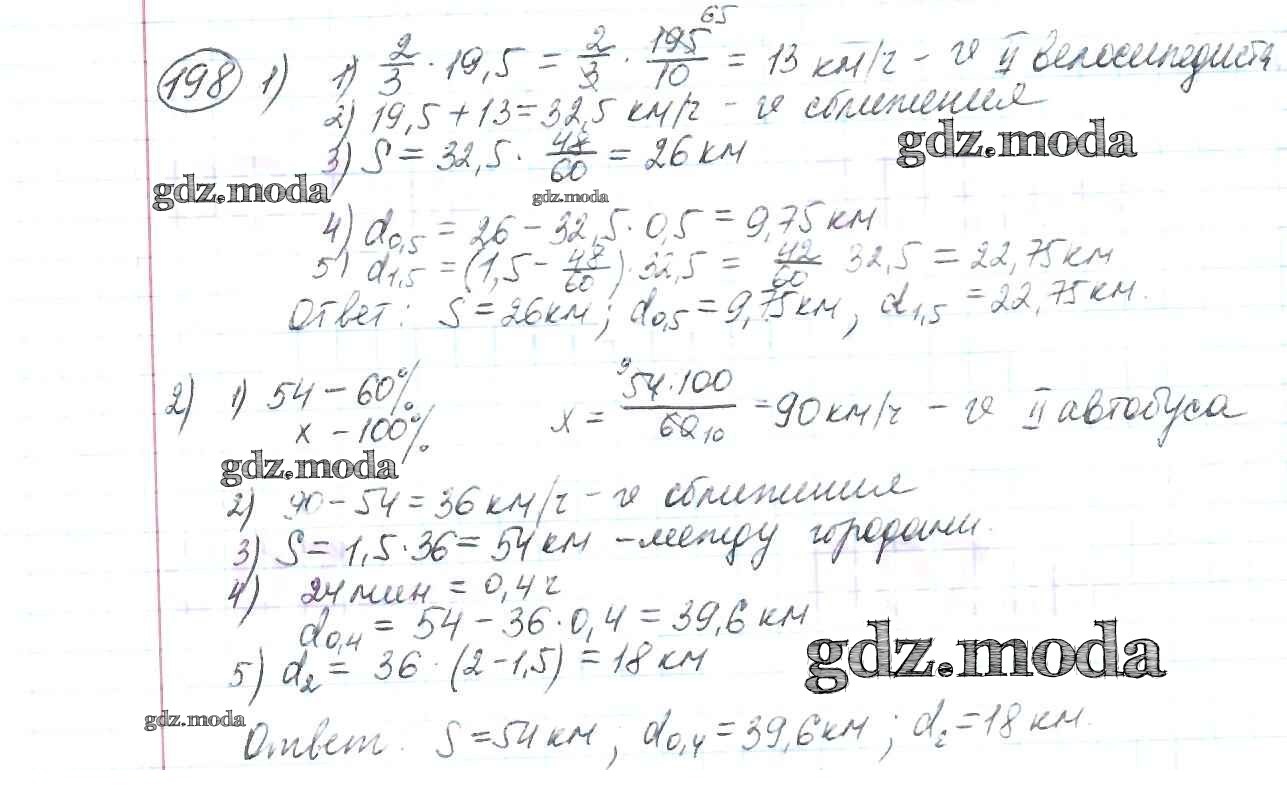 198 1) 1) 2/3 · 19,5 = 2/3 · 195/10 65 = 13 км/ч - v II велосипедиста
2) 19,5 + 13 = 32,5 км/ч - v сближения
gdz.moda
3) S = 32,5 · 48/60 = 26 км
gdz.moda
gdz.moda
4) d0,5 = 26 - 32,5 · 0,5 = 9,75 км
5) d1,5 = (1,5 - 48/60) · 32,5 = 42/60 32,5 = 22,75 км
Ответ: S = 26 км; d0,5 = 9,75 км, d1,5 = 22,75 км.
2) 1) 54 - 60%
x - 100%
x = 54 · 100 / 60 9 10 = 90 км/ч - v II автобуса
gdz.moda
2) 90 - 54 = 36 км/ч - v сближения
3) S = 1,5 · 36 = 54 км - между городами.
4) 24 мин = 0,4 ч
d0,4 = 54 - 36 · 0,4 = 39,6 км
gdz.moda
5) d2 = 36 · (2 - 1,5) = 18 км
gdz.moda
Ответ. S = 54 км, d0,4 = 39,6 км; d2 = 18 км.